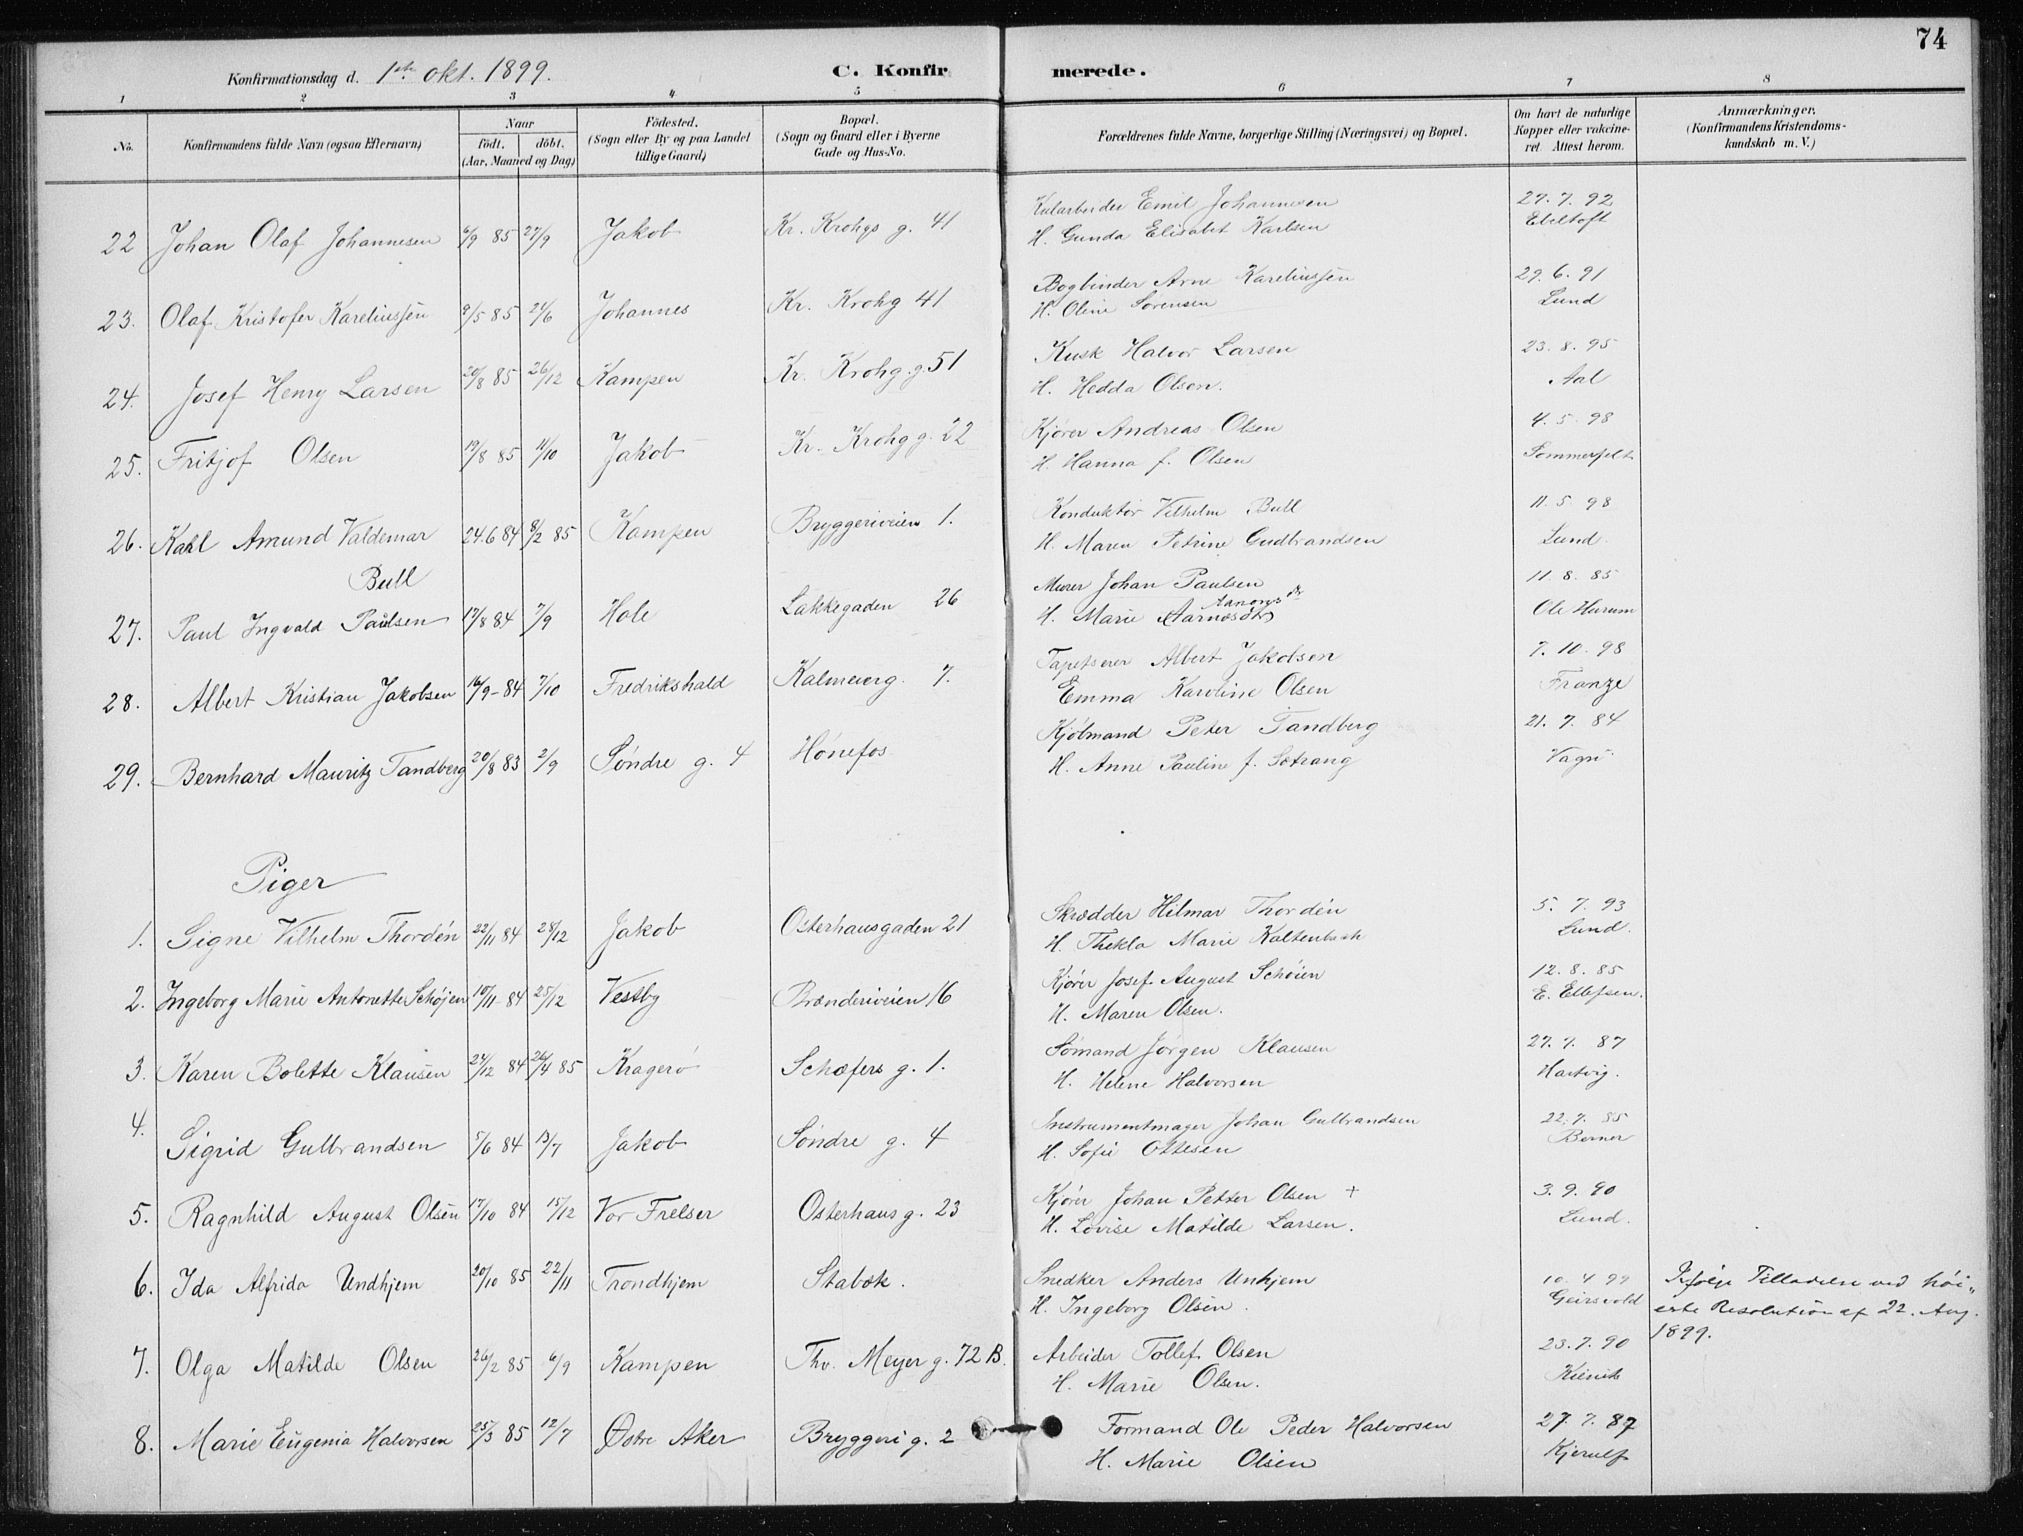 74
Konfirmationsdag d. 1ste okt. 1899.
C. Konfirmerede.
1 2 3 4 5 6 7 8
No. Konfirmandens fulde Navn (ogsaa Efternavn) Naar födt. döbt. (Aar, Maaned og Dag) Födested. (Sogn eller By og paa Landet tillige Gaard) Bopæl. (Sogn og Gaard eller i Byerne Gade og Hus-No. Forældrenes fulde Navne, borgerlige Stilling (Næringsvei) og Bopæl. Om havt de naturlige Kopper eller vakcineret. Attest herom. Anmærkninger. (Konfirmandens Kristendomskundskab m. V.)
22 Johan Olaf Johannesen 6/9 85 27/9 Jakob Kr. Krohgs g. 41 Kularbeider Emil Johannesen 27.7.92
H. Gunda Elisabet Karlsen Ebeltoft
23. Olaf Kristofer Kareliussen 9/5 85 24/6 Johannes Kr. Krohg 41 Bogbinder Arne Kareliussen 29.6.91
H. Oline Sorensen Lund
24. Josef Henry Larsen 20/8 85 26/12 Kampen Kr. Krohg.g. 51 Kusk Halvor Larsen 23.8.95
H. Hedda Olsen. Aal
25. Fritjof Olsen 19/8 85 11/10 Jakob Kr. Krohg g. 22 Kjører Andreas Olsen 4.5.98
H. Hanna f. Olsen Sommerfelt
26. Karl Amund Valdemar Bull 24.6 84 8/2 85 Kampen Bryggeriveien 1. Konduktør Vilhelm Bull 11.5 98
H. Maren Petrine Gudbrandsen Lund.
27. Paul Ingvald Paulsen 17/8 84 7/9 Hole Lakkegaden 26 Murer Johan Paulsen 11.8.85
H. Marie Ole Harum
28. Albert Kristian Jakobsen 16/9-84 7/10 Fredrikshald Kalmeierg. 7. Tapetserer Albert Jakobsen 7.10.98
Emma Karoline Olsen Franze
29. Bernhard Mauritz Tandberg 20/8 83 2/9 Søndre g. 4 Hønefos Kjøbmand Peter Tandberg 21.7.84
H. Anne Pauline f. Sætrang
Piger
1. Signe Vilhelm Thordén 22/11 84 28/12 Jakob Osterhausgaden 21 Skrædder Hilmar Thordén 5.7.93
H. Thekla Marie Kaltenbach Lund.
2. Ingeborg Marie Antonette Schøjen 10/11 84 25/12 Vestby Brænderiveien 16 Kjører Josef August Schøien 12.8.85
H. Maren Olsen. E. Ellefsen.
3. Karen Bolette Klausen 24/12 84 26/4 85 Kragerø Schæfers g. 1. Sømand Jørgen Klausen 27.7.87
H. Helene Halvorsen Hartvig.
4. Sigrid Gulbrandsen 5/6 84 13/7 Jakob Søndre g. 4 Instrumentmager Johan Gulbrandsen 22.7.85
H. Sofie Ottesen Berner
5. Ragnhild August Olsen 17/10 84 15/12 Vor Frelser Osterhaus g. 23 Kjører Johan Petter Olsen + 3.9.90
H. Lovise Matilde Larsen. Lund.
6. Ida Alfrida Undhjem 20/10 85 22/11 Trondhjem Stabæk. Snedker Anders Unhjem 10.4 99 Ifølge Tilladelse ved høi-
H. Ingeborg Olsen. Geirsvold este Resolution af 22. Aug.
1899.
7. Olga Matilde Olsen 26/2 85 6/9 Kampen Thv. Meyer g. 72 B. Arbeider Tollef Olsen 23.7.90
H. Marie Olsen.
8. Marie Eugenia Halvorsen 25/3 85 12/7 Østre Aker Bryggeri g. 2 Formand Ole Peder Halvorsen 27.7.87
H. Marie Olsen Kjerulf